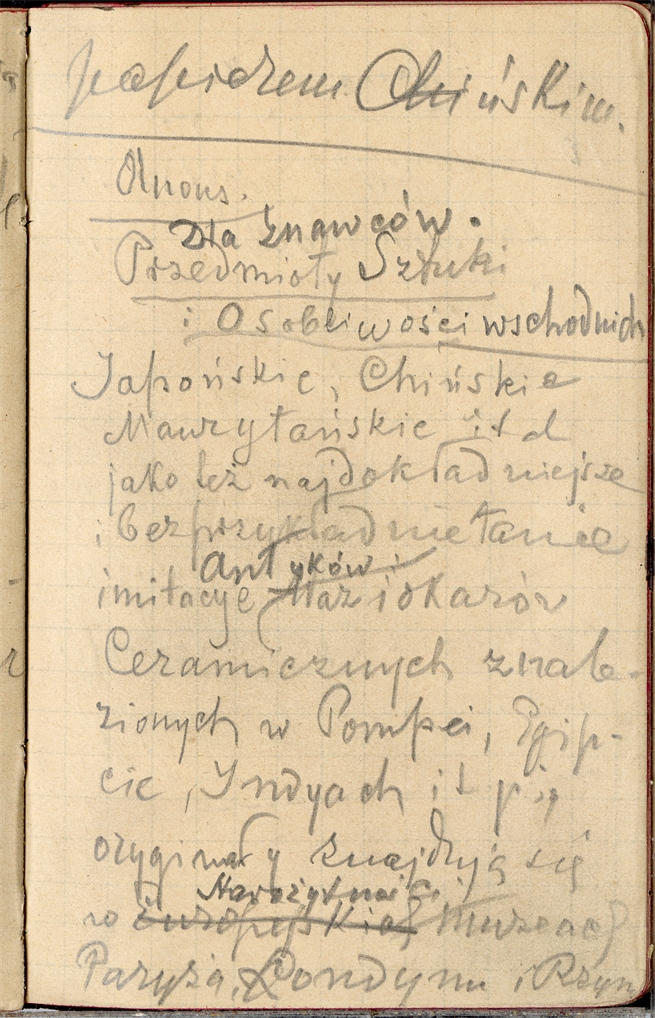 papierem Chińskim.
Anons.
Dla znawców.
Przedmioty Sztuki
i Osobliwości wschodnich
Japońskie, Chińskie
Maurytańskie itd
jako też najdokładniejsze
i bezprzykładnie tanie
Antyków i
imitacye okazów
Ceramicznych znale-
zionych w Pompei, Egip-
cie, Indyach i t p.
oryginały znajdują się
Starożytności
w Europejskich Muzeach
Paryża, Londynu i Rzym